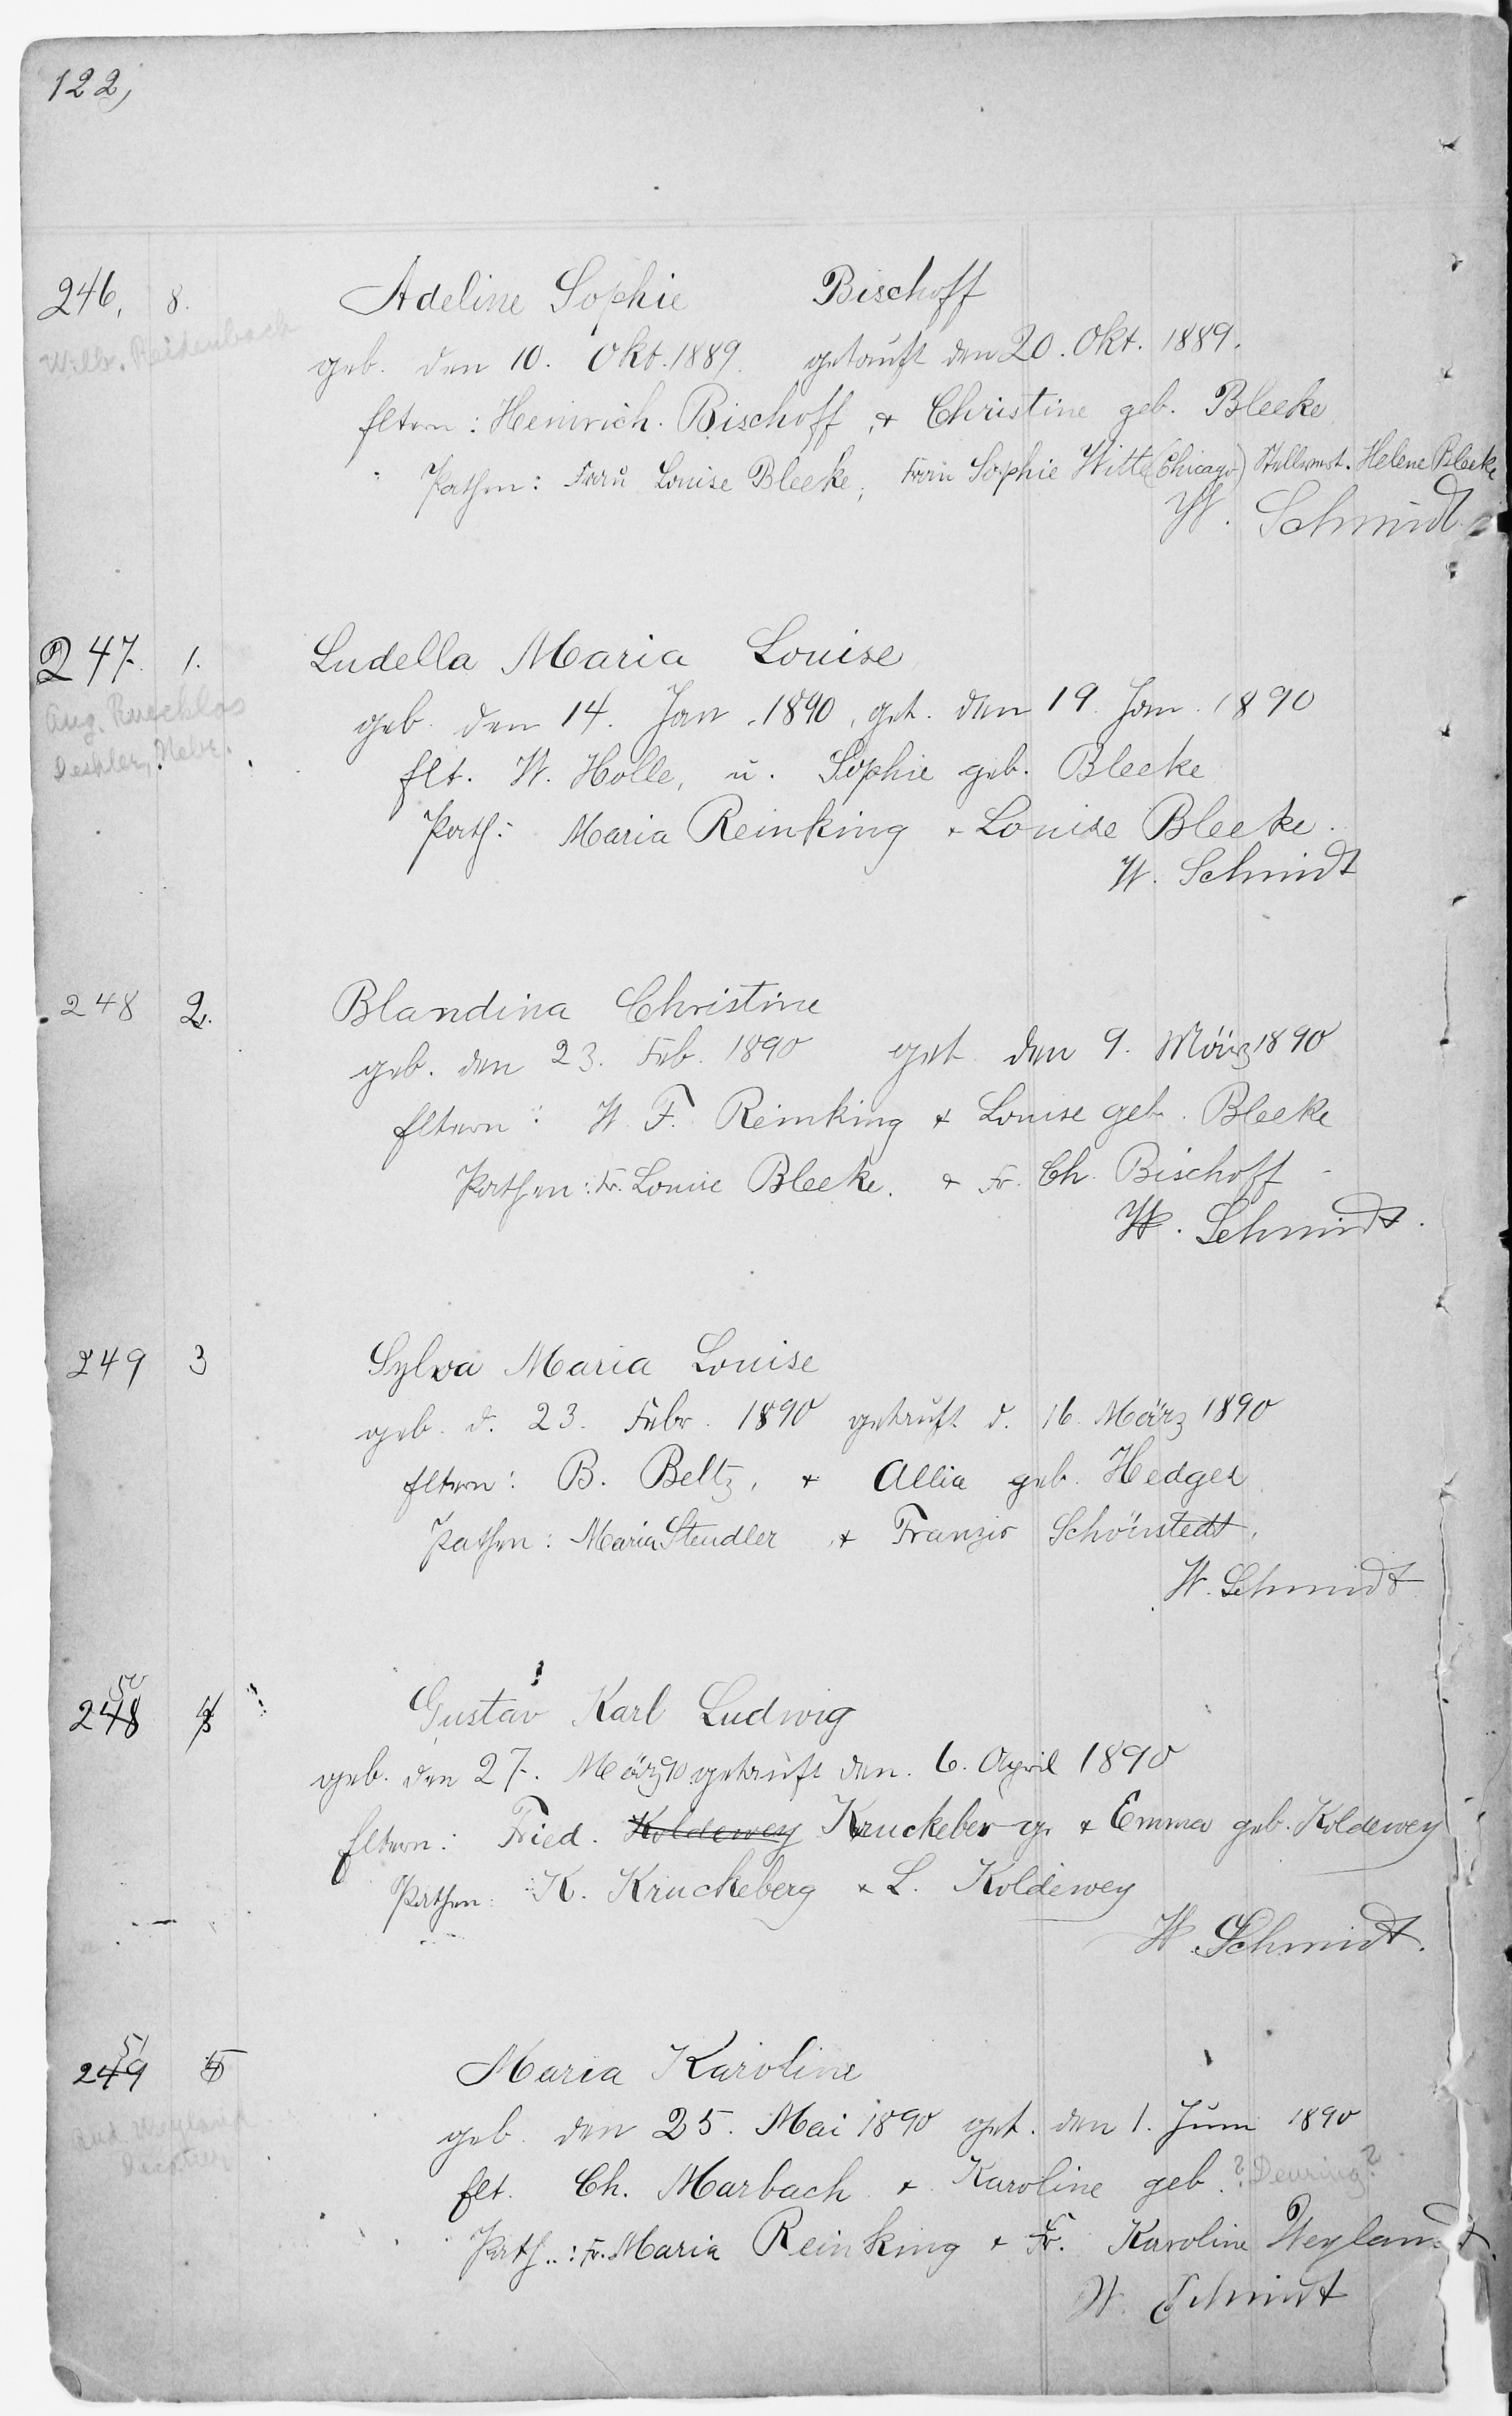 122,
246, 8. Adeline Sophie Bischoff
geb. den 10. Okt. 1889. getauft den 20. Okt. 1889.
Wilb. Reidenbach
Eltern: Heinrich Bischoff, & Christine geb. Bleeke
Pathen: Frau Louise Bleeke; Frau Sophie Witte (Chicago) Stellvert. Helene Bleeke
W. Schmidt
247. 1. Ludella Maria Louise
geb. den 14. Jan. 1890, get. den 19. Jan. 1890
Aug.
Deshler, Nebr.
Elt. W. Holle, u. Sophie geb. Bleeke
Path: Maria Reinking & Louise Bleeke.
W. Schmidt
248 2. Blandina Christine
geb. den 23. Feb. 1890 get den 9. März 1890
Eltern: W. F. Reinking & Louise geb. Bleeke
Pathen: Fr. Louise Bleeke. & Fr. Ch. Bischoff
W. Schmidt.
249 3 Sylva Maria Louise
geb. d. 23. Febr. 1890 getauft d. 16. März 1890
Eltern: B. Beltz, & Allia geb. Hedges
Pathen: Maria Stendler & Franzis Schönstedt.
W. Schmidt
50
248 4 Gustav Karl Ludwig
geb. den 27. März 90 getauft den. 6. April 1890
Eltern: Fried. Koldewey Kruckeberg. & Emma geb. Koldewey
Pathen: K. Kruckeberg & L. Koldewey
W. Schmidt.
51
249 5 Maria Karoline
geb. den 25. Mai 1890 get. den 1. Juni 1890
Elt. Ch. Marbach & Karoline geb. ? Deuring?
Path..: Fr. Maria Reinking & Fr. Karoline Weyland.
W. Schmidt